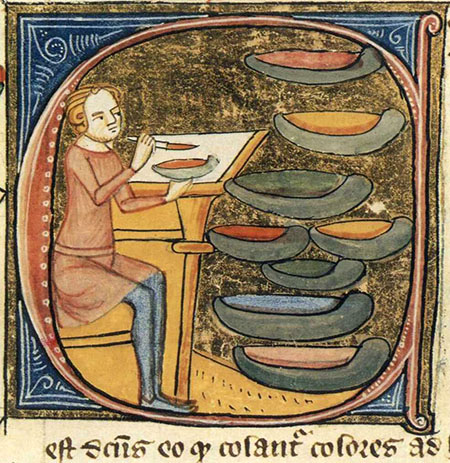 C
est dc̄us eo ꝙ colant᷑ colores ad